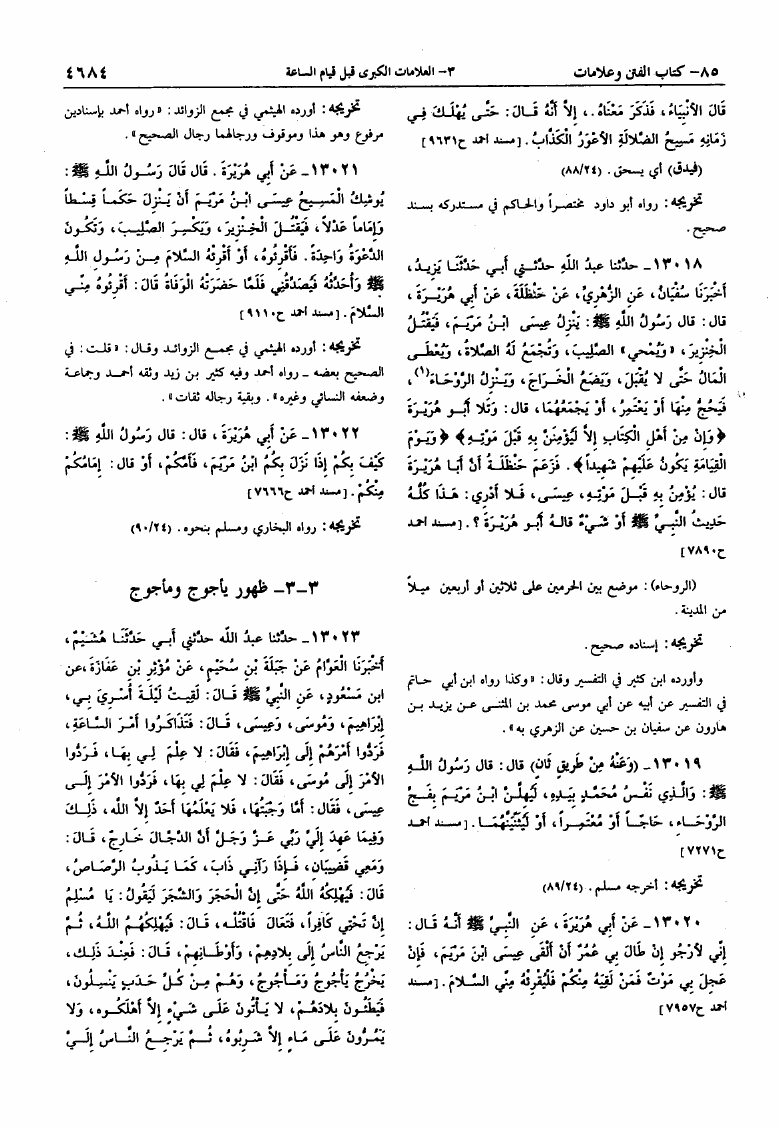 ٨٥- كتاب الفتن وعلامات
٣- العلامات الكبرى قبل قيام الساعة
٤٦٨٤
قَالَ الأَنْبِيَاءُ، فَذَكَرَ مَعْنَاهُ.، إِلاَّ أَنَّهُ قَـالَ: حَتَّـى يُهْلَـكَ فِـي
زَمَانِهِ مَسِيحُ الضَّلاَلَةِ الأَعْوَرُ الْكَذَّابُ. [مسند احمد ح٩٦٣١]
(فيدق) أي يسحق. (٨٨/٢٤)
تخريجه: رواه أبو داود مختصراً والحاكم في مستدركه بسند
صحيح.
١٣٠١٨ـ حدثنا عبدُ اللَّهِ حدثـني أبـي حَدَّثَنَـا يَزِيـدُ،
أَخْبَرَنَا سُفْيَانُ، عَنِ الزُّهْرِيِّ، عَنْ حَنْظَلَةَ، عَنْ أَبِي هُرَيْـرَةَ،
قال: قال رَسُولُ اللَّهِ ﷺ: يَنْزِلُ عِيسَى ابْـنُ مَرْيَـمَ، فَيَقْتُـلُ
الْخِنْزِيرَ، «وَيُمْحِي» الصَّلِيبَ، وَتُجْمَعُ لَهُ الصَّلاةُ، وَيُعْطَـى
الْمَالُ حَتَّى لا يُقْبَلَ، وَيَضَعُ الْخَـرَاجَ، وَيَـنْزِلُ الرَّوْحَـاءَ(١)،
فَيَحُجُّ مِنْهَا أَوْ يَعْتَمِرُ، أَوْ يَجْمَعُهُمَا، قال: وَتَلا أَبُـو هُرَيْـرَةَ
﴿وَإِنْ مِنْ أَهْلِ الْكِتَابِ إِلاَّ لَيُؤْمِنَنَّ بِهِ قَبْلَ مَوْتِـهِ﴾ ﴿وَيَـوْمَ
الْقِيَامَةِ يَكُونُ عَلَيْهِمْ شَهِيداً﴾. فَزَعَمَ حَنْظَلَـةُ أَنَّ أَبَـا هُرَيْـرَةَ
قال: يُؤْمِنُ بِهِ قَبْـلَ مَوْتِـهِ، عِيسَـى، فَـلا أَدْرِي: هَـذَا كُلُّـهُ
حَدِيثُ النَّبِيِّ ﷺ أَوْ شَيْءٌ قالَـهُ أَبُـو هُرَيْـرَةَ؟. [مسـند احمد
ح٧٨٩٠]
(الروحاء): موضع بين الحرمين على ثلاثين أو أربعين ميلاً
من المدينة.
تخريجه: إسناده صحيح.
وأورده ابن كثير في التفسير وقال: «وكذا رواه ابن أبي حـاتم
في التفسير عن أبيه عن أبي موسى محمد بن المثنـى عـن يزيـد بـن
هارون عن سفيان بن حسين عن الزهري به».
١٣٠١٩ـ (وَعَنْهُ مِنْ طَرِيقٍ ثَانٍ) قال: قال رَسُولُ اللَّـهِ
ﷺ: وَالَّذِي نَفْـسُ مُحَمَّـدٍ بِيَـدِهِ، لَيُهِلَّـنَّ ابْـنُ مَرْيَـمَ بِفَـجِّ
الرَّوْحَـاءِ، حَاجّـاً أَوْ مُعْتَمِـراً، أَوْ لَيُثَنِّيَنَّهُمَـا. [مسـند احمـد
ح٧٢٧١]
تخريجه: أخرجه مسلم. (٨٩/٢٤)
١٣٠٢٠ـ عَنْ أَبِي هُرَيْرَةَ، عَنِ النَّبِيِّ ﷺ أَنَّـهُ قـال:
إِنِّي لأَرْجُو إِنْ طَالَ بِي عُمُرٌ أَنْ أَلْقَى عِيسَى ابْنَ مَرْيَمَ، فَإِنْ
عَجِلَ بِي مَوْتٌ فَمَنْ لَقِيَهُ مِنْكُمْ فَلْيُقْرِئْهُ مِنِّي السَّـلامَ. [مسند
احمد ح٧٩٥٧]
تخريجه: أورده الهيثمي في مجمع الزوائد: «رواه أحمد بإسنادين
مرفوع وهو هذا وموقوف ورجالهما رجال الصحيح».
١٣٠٢١ـ عَنْ أَبِي هُرَيْرَةَ. قال قَالَ رَسُـولُ اللَّـهِ ﷺ:
يُوشِكُ الْمَسِيحُ عِيسَى ابْـنُ مَرْيَـمَ أَنْ يَـنْزِلَ حَكَمـاً قِسْـطاً
وَإِمَاماً عَدْلاً، فَيَقْتُـلَ الْخِنْزِيرَ، وَيَكْسِـرَ الصَّلِيـبَ، وَتَكُـونَ
الدَّعْوَةُ وَاحِدَةً. فَأَقْرِئُوهُ، أَوْ أَقْرِئْهُ السَّلامَ مِـنْ رَسُـولِ اللَّهِ
ﷺ وَأُحَدِّثُهُ فَيُصَدِّقُنِي فَلَمَّا حَضَرَتْهُ الْوَفَاةُ قَالَ: أَقْرِئُوهُ مِنِّـي
السَّلامَ. [مسند احمد ح٩١١٠]
تخريجه: أورده الهيثمي في مجمـع الزوائـد وقـال: «قلـت: في
الصحيح بعضه ـ رواه أحمد وفيه كثير بن زيد وثقه أحمـد وجماعـة
وضعفه النسائي وغيره». وبقية رجاله ثقات».
١٣٠٢٢ـ عَنْ أَبِي هُرَيْرَةَ، قال: قال رَسُولُ اللَّهِ ﷺ:
كَيْفَ بِكُمْ إِذَا نَزَلَ بِكُمُ ابْنُ مَرْيَمَ، فَأَمَّكُمْ، أَوْ قال: إِمَامُكُمْ
مِنْكُمْ. [مسند احمد ح٧٦٦٦]
تخريجه: رواه البخاري ومسلم بنحوه. (٩٠/٢٤)
٣-٣- ظهور يأجوج ومأجوج
١٣٠٢٣ـ حدثنا عبدُ اللَّه حدثني أبـي حَدَّثَنَـا هُشَيْـمٌ،
أَخْبَرَنَا الْعَوَّامُ عَنْ جَبَلَةَ بْنِ سُحَيْمٍ، عَنْ مُؤْثِرِ بْنِ عَفَازَةَ،عن
ابن مَسْعُودٍ، عَنِ النَّبِيِّ ﷺ قَـالَ: لَقِيـتُ لَيْلَةَ أُسْـرِيَ بِـي،
إِبْرَاهِيمَ، وَمُوسَى، وَعِيسَى، قَـالَ: فَتَذَاكَـرُوا أَمْـرَ السَّـاعَةِ،
فَرَدُّوا أَمْرَهُمْ إِلَى إِبْرَاهِيمَ، فَقَالَ: لا عِلْمَ لِـي بِهَـا، فَـرَدُّوا
الأَمْرَ إِلَى مُوسَى، فَقَالَ: لا عِلْمَ لِي بِهَا، فَرَدُّوا الأَمْرَ إِلَـى
عِيسَى، فَقَالَ: أَمَّا وَجْبَتُهَا، فَلا يَعْلَمُهَا أَحَدٌ إِلاَّ اللَّه، ذَلِـكَ
وَفِيمَا عَهِدَ إِلَيَّ رَبِّي عَـزَّ وَجَلَّ أَنَّ الدَّجَّالَ خَـارِجٌ، قَـالَ:
وَمَعِي قَضِيبَانِ، فَـإِذَا رَآنِـي ذَابَ، كَمَـا يَـذُوبُ الرَّصَاصُ،
قَالَ: فَيُهْلِكُهُ اللَّهُ حَتَّى إِنَّ الْحَجَرَ وَالشَّجَرَ لَيَقُولُ: يَا مُسْلِمُ
إِنَّ تَحْتِي كَافِراً، فَتَعَالَ فَاقْتُلْـه، قَـالَ: فَيُهْلِكُهُـمُ اللَّـهُ، ثُـمَّ
يَرْجِعُ النَّاسُ إِلَى بِلادِهِمْ، وَأَوْطَـانِهِمْ، قَـالَ: فَعِنْـدَ ذَلِـكَ،
يَخْرُجُ يَأْجُوجُ وَمَـأْجُوجُ، وَهُـمْ مِـنْ كُـلِّ حَدَبٍ يَنْسِـلُونَ،
فَيَطَئُـونَ بِلادَهُـمْ، لا يَـأْتُونَ عَلَـى شَـيْءٍ إِلاَّ أَهْلَكُـوه، وَلا
يَمُـرُّونَ عَلَى مَـاءٍ إِلاَّ شَـرِبُوهُ، ثُـمَّ يَرْجِـعُ النَّـاسُ إِلَـيَّ